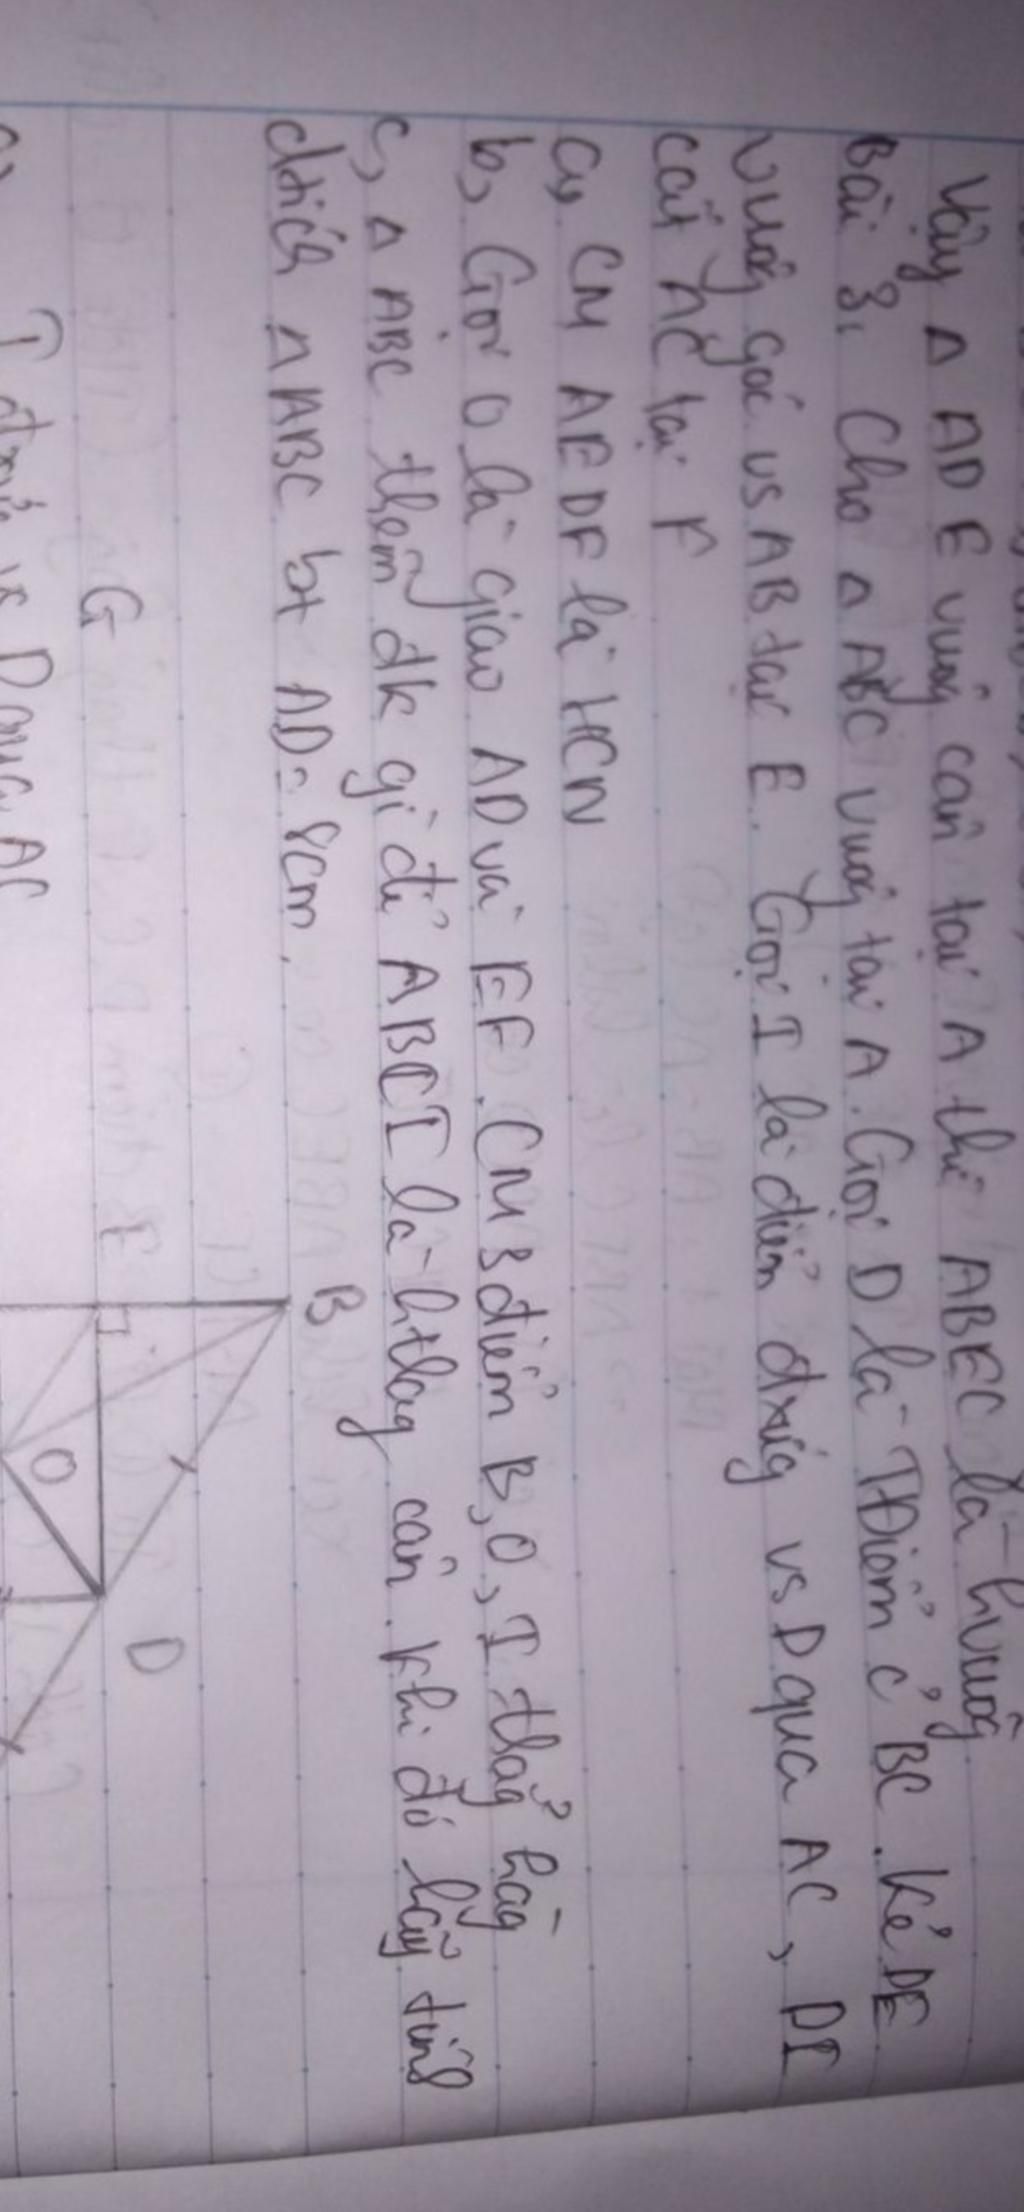 Vậy Δ ADE vuôg cân tại A thì ABEC là hvuôg
Bài 3, Cho Δ ABC vuôg tại A. Gọi D là TĐiểm củ BC. Kẻ DE
vuôg góc vs AB tại E. Gọi I là điểm đxứg vs D qua AC, DI
cắt AC tại F
a, CM AEDF là HCN
b, Gọi O là giao AD và EF. CM 3 điểm B, O, I thẳg hàg
c, Δ ABC thêm đk gì để ABCI là hthag cân. Khi đó hãy tính
dtích Δ ABC bt AD = 8cm.
G
B
D
O
I đxứg vs D qua AC